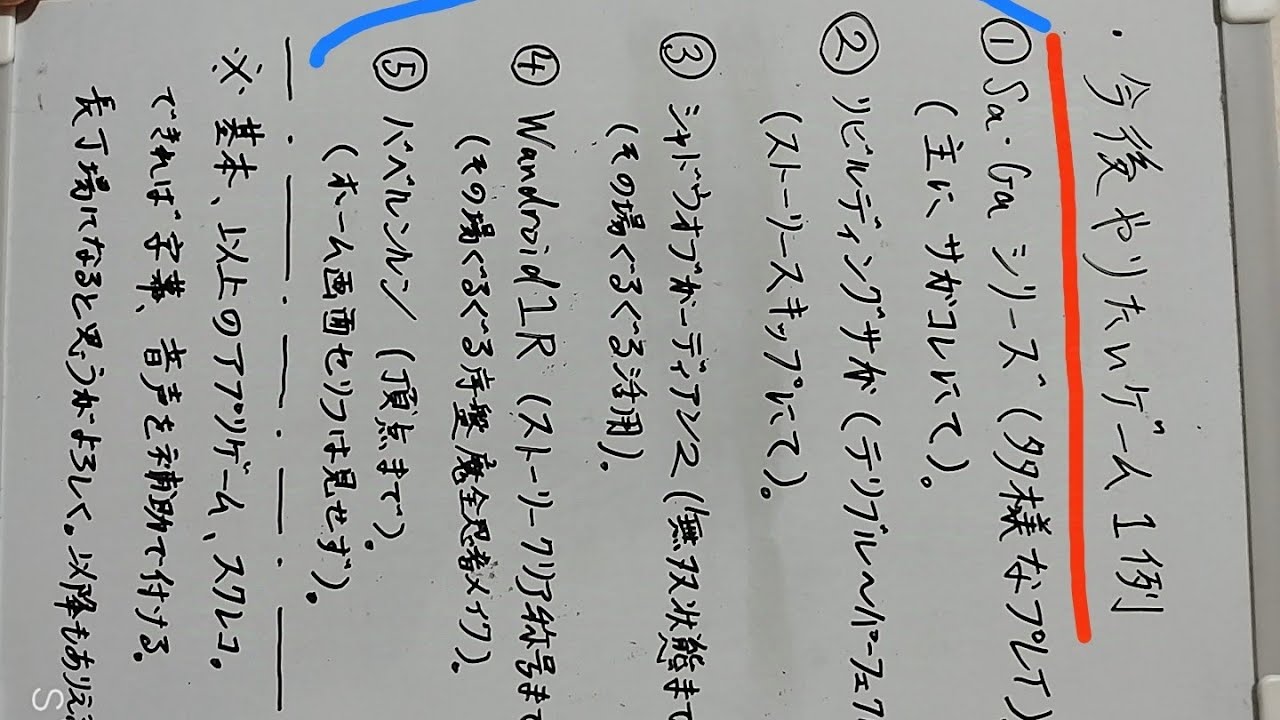 ・今後やりたいゲーム1例
① Sa・Ga シリーズ(多様なプレイ)
(主にサガコレにて)。
② リビルディングサガ(テリブル〜パーフェク
(ストーリースキップにて)。
③ シャドウオブガーディアン2(無双状態まで
(その場ぐるぐる活用)。
④ Wandroid1R(ストーリークリア称号まで
(その場ぐるぐる序盤魔全忍者メイク)。
⑤ バベルンルン(頂点まで)。
(ホーム画面セリフは見せず)。
※ 基本、以上のアプリゲーム、スクレコ。
できれば字幕、音声を補助で付ける。
長丁場になると思うがよろしく。以降もありえ
S